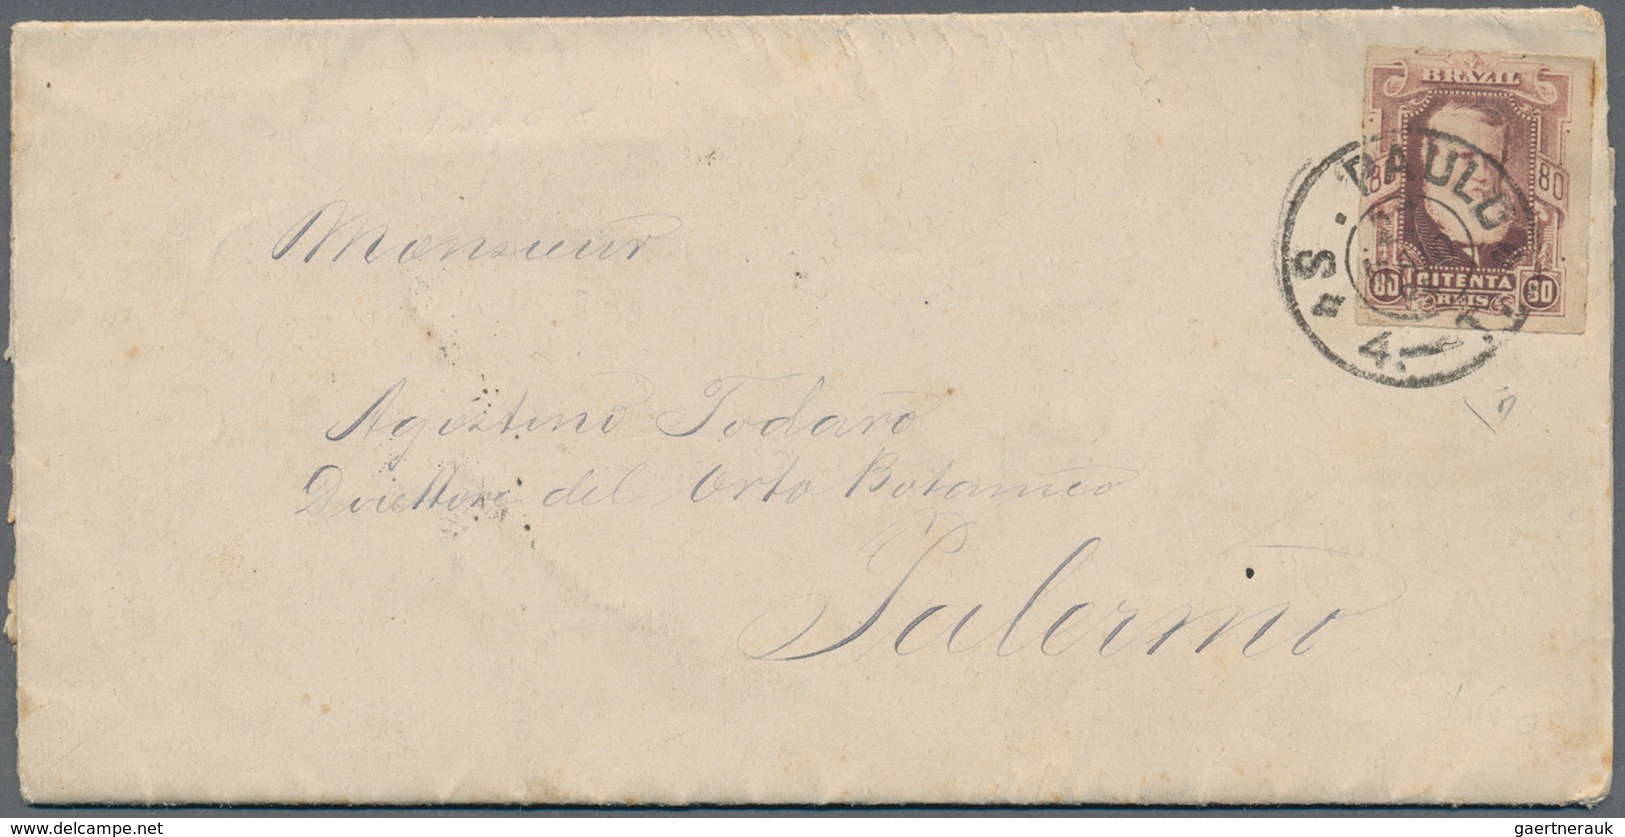 BRAZIL
80 80
80 OITENTA 80
REIS
S. PAULO
4.
Monsieur
Agostino Todaro
Direttore del Orto Botanico
Palermo
www.delcampe.net
gaertnerauk